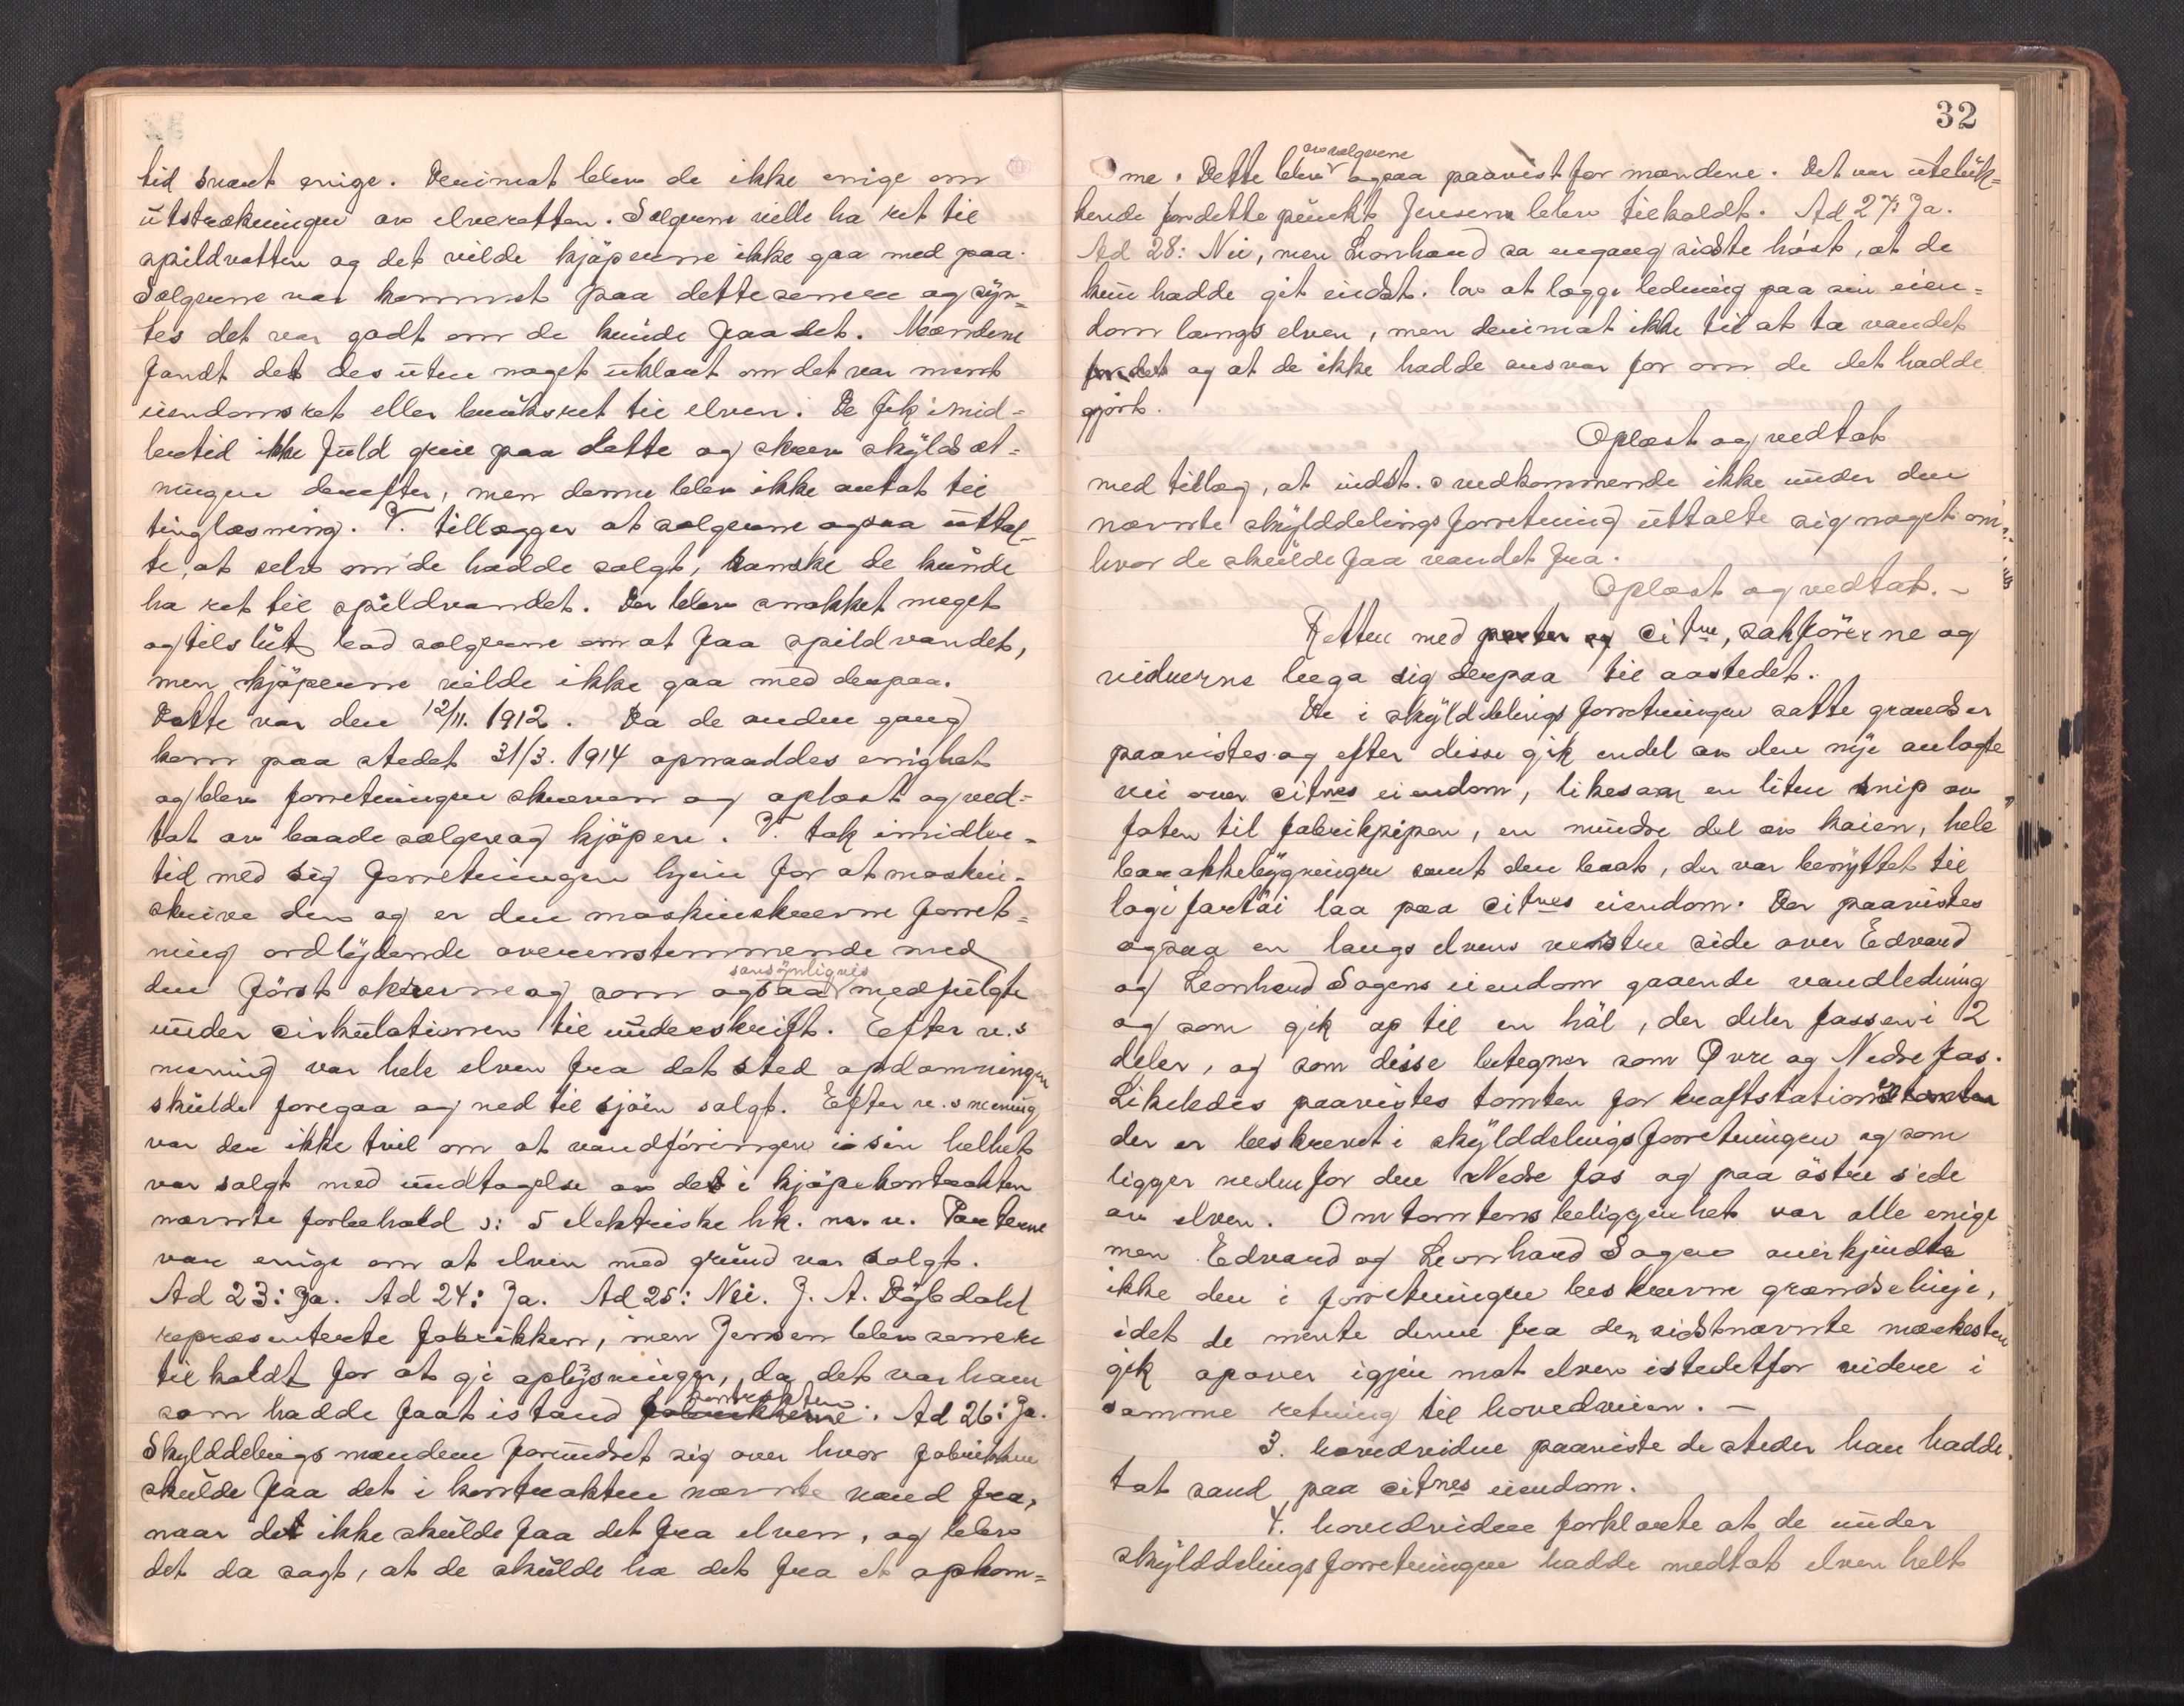 tid snart enige. Derimot blev de ikke enige om
utstrækningen av elveretten. Sælgerne vilde ha ret til
spildvatten og det vilde kjøperne ikke gaa med paa.
Sælgerne var kommet paa dette senere og syn-
tes det var godt om de kunde faa det. Mændene
fandt det des uten noget uklart om det var ment
eiendomsret eller bruksret til elven. De fik imid-
lertid ikke fuld greie paa dette og skrev skyldsæt-
ningen derefter, men denne blev ikke antat til
tinglæsning. V. tillægger at sælgerne ogsaa uttal-
te, at selv om de hadde solgt, kanske de kunde
ha ret til spildvandet. Der blev snakket meget
og tilslut bad sælgerne om at faa spildvandet,
men kjøperne vilde ikke gaa med derpaa.
Dette var den 12/11. 1912. Da de anden gang
kom paa stedet 31/3. 1914 opnaaddes enighet
og blev forretningen skreven og oplæst og ved-
tat av baade sælger og kjøper. V. tok imidler-
tid med sig forretningen hjem for at maskin-
skrive den og er den maskinskrevne forret-
ning ordlydende overensstemmende med
sansynligvis
den først skrevne og som ogsaa medfulgte
under cirkulationen til underskrift. Efter v.s
mening var hele elven fra det sted opdæmningen
skulde foregaa og ned til sjøen solgt. Efter v.s mening
var der ikke tvil om at vandføringen i sin helhet
var solgt med undtagelse av det i kjøpekontrakten
nævnte forbehold ɔ: 5 elektriske hk. m. v. Parterne
var enige om at elven med grund var solgt.
Ad 23: Ja. Ad 24: Ja. Ad 25: Nei. J. A. Døbdahl
repræsenterte fabrikken, men Jensen blev senere
tilkaldt for at gi oplysninger, da det var ham
kontrakten
som hadde faat istand fabrikkerne. Ad 26: Ja.
Skylddelingsmændene forundret sig over hvor fabrikken
skulde faa det i kontrakten nævnte vand fra,
naar det ikke skulde faa det fra elven, og blev
det da sagt, at de skulde ha det fra et opkom-
32
av sælgerne
me. Dette blev ogsaa paavist for mændene. Det var uteluk-
kende for dette punkt Jensen blev tilkaldt. Ad 27: Ja.
Ad 28: Nei, men Leonhard sa engang sidste høst, at de
kun hadde git indst. lov at lægge ledning paa sin eien-
dom langs elven, men derimot ikke til at ta vandet
for det og at de ikke hadde ansvar for om de det hadde
gjort.
Oplæst og vedtat
med tillæg, at indst. vedkommende ikke under den
nævnte skylddelingsforretning uttalte sig noget om,
hvor de skulde faa vandet fra.
Oplæst og vedtat. -
Retten med parter og citne, sakførerne og
vidnerne begav sig derpaa til aastedet.
De i skylddelingsforretningen satte grændser
paavistes og efter disse gik endel av den nye anlagte
vei over citnes eiendom, likesaa en liten snip av
foten til fabrikpipen, en mindre del av kaien, hele
barakkebygningen samt den baat, der var benyttet til
logifartøi laa paa citnes eiendom. Der paavistes
ogsaa en langs elvens venstre side over Edvard
og Leonhard Sagens eiendom gaaende vandledning
og som gik op til en høl, der deler fossen i 2
deler, og som disse betegner som Øvre og Nedre fos.
Likeledes paavistes tomten for kraftstationstomten
der er beskrevet i skylddelingsforretningen og som
ligger nedenfor den Nedre fos og paa østre side
av elven. Om tomtens beliggenhet var alle enige
men Edvard og Leonhard Sagen anerkjendte
ikke den i forretningen beskrevne grændselinje,
idet de mente denne fra den sidstnævnte merkesten
gik opover igjen mot elven istedetfor videre i
samme retning til hovedveien. -
3. hovedvidne paaviste de steder han hadde
tat sand paa citnes eiendom.
4. hovedvidne forklarte at de under
skylddelingsforretningen hadde medtat elven helt